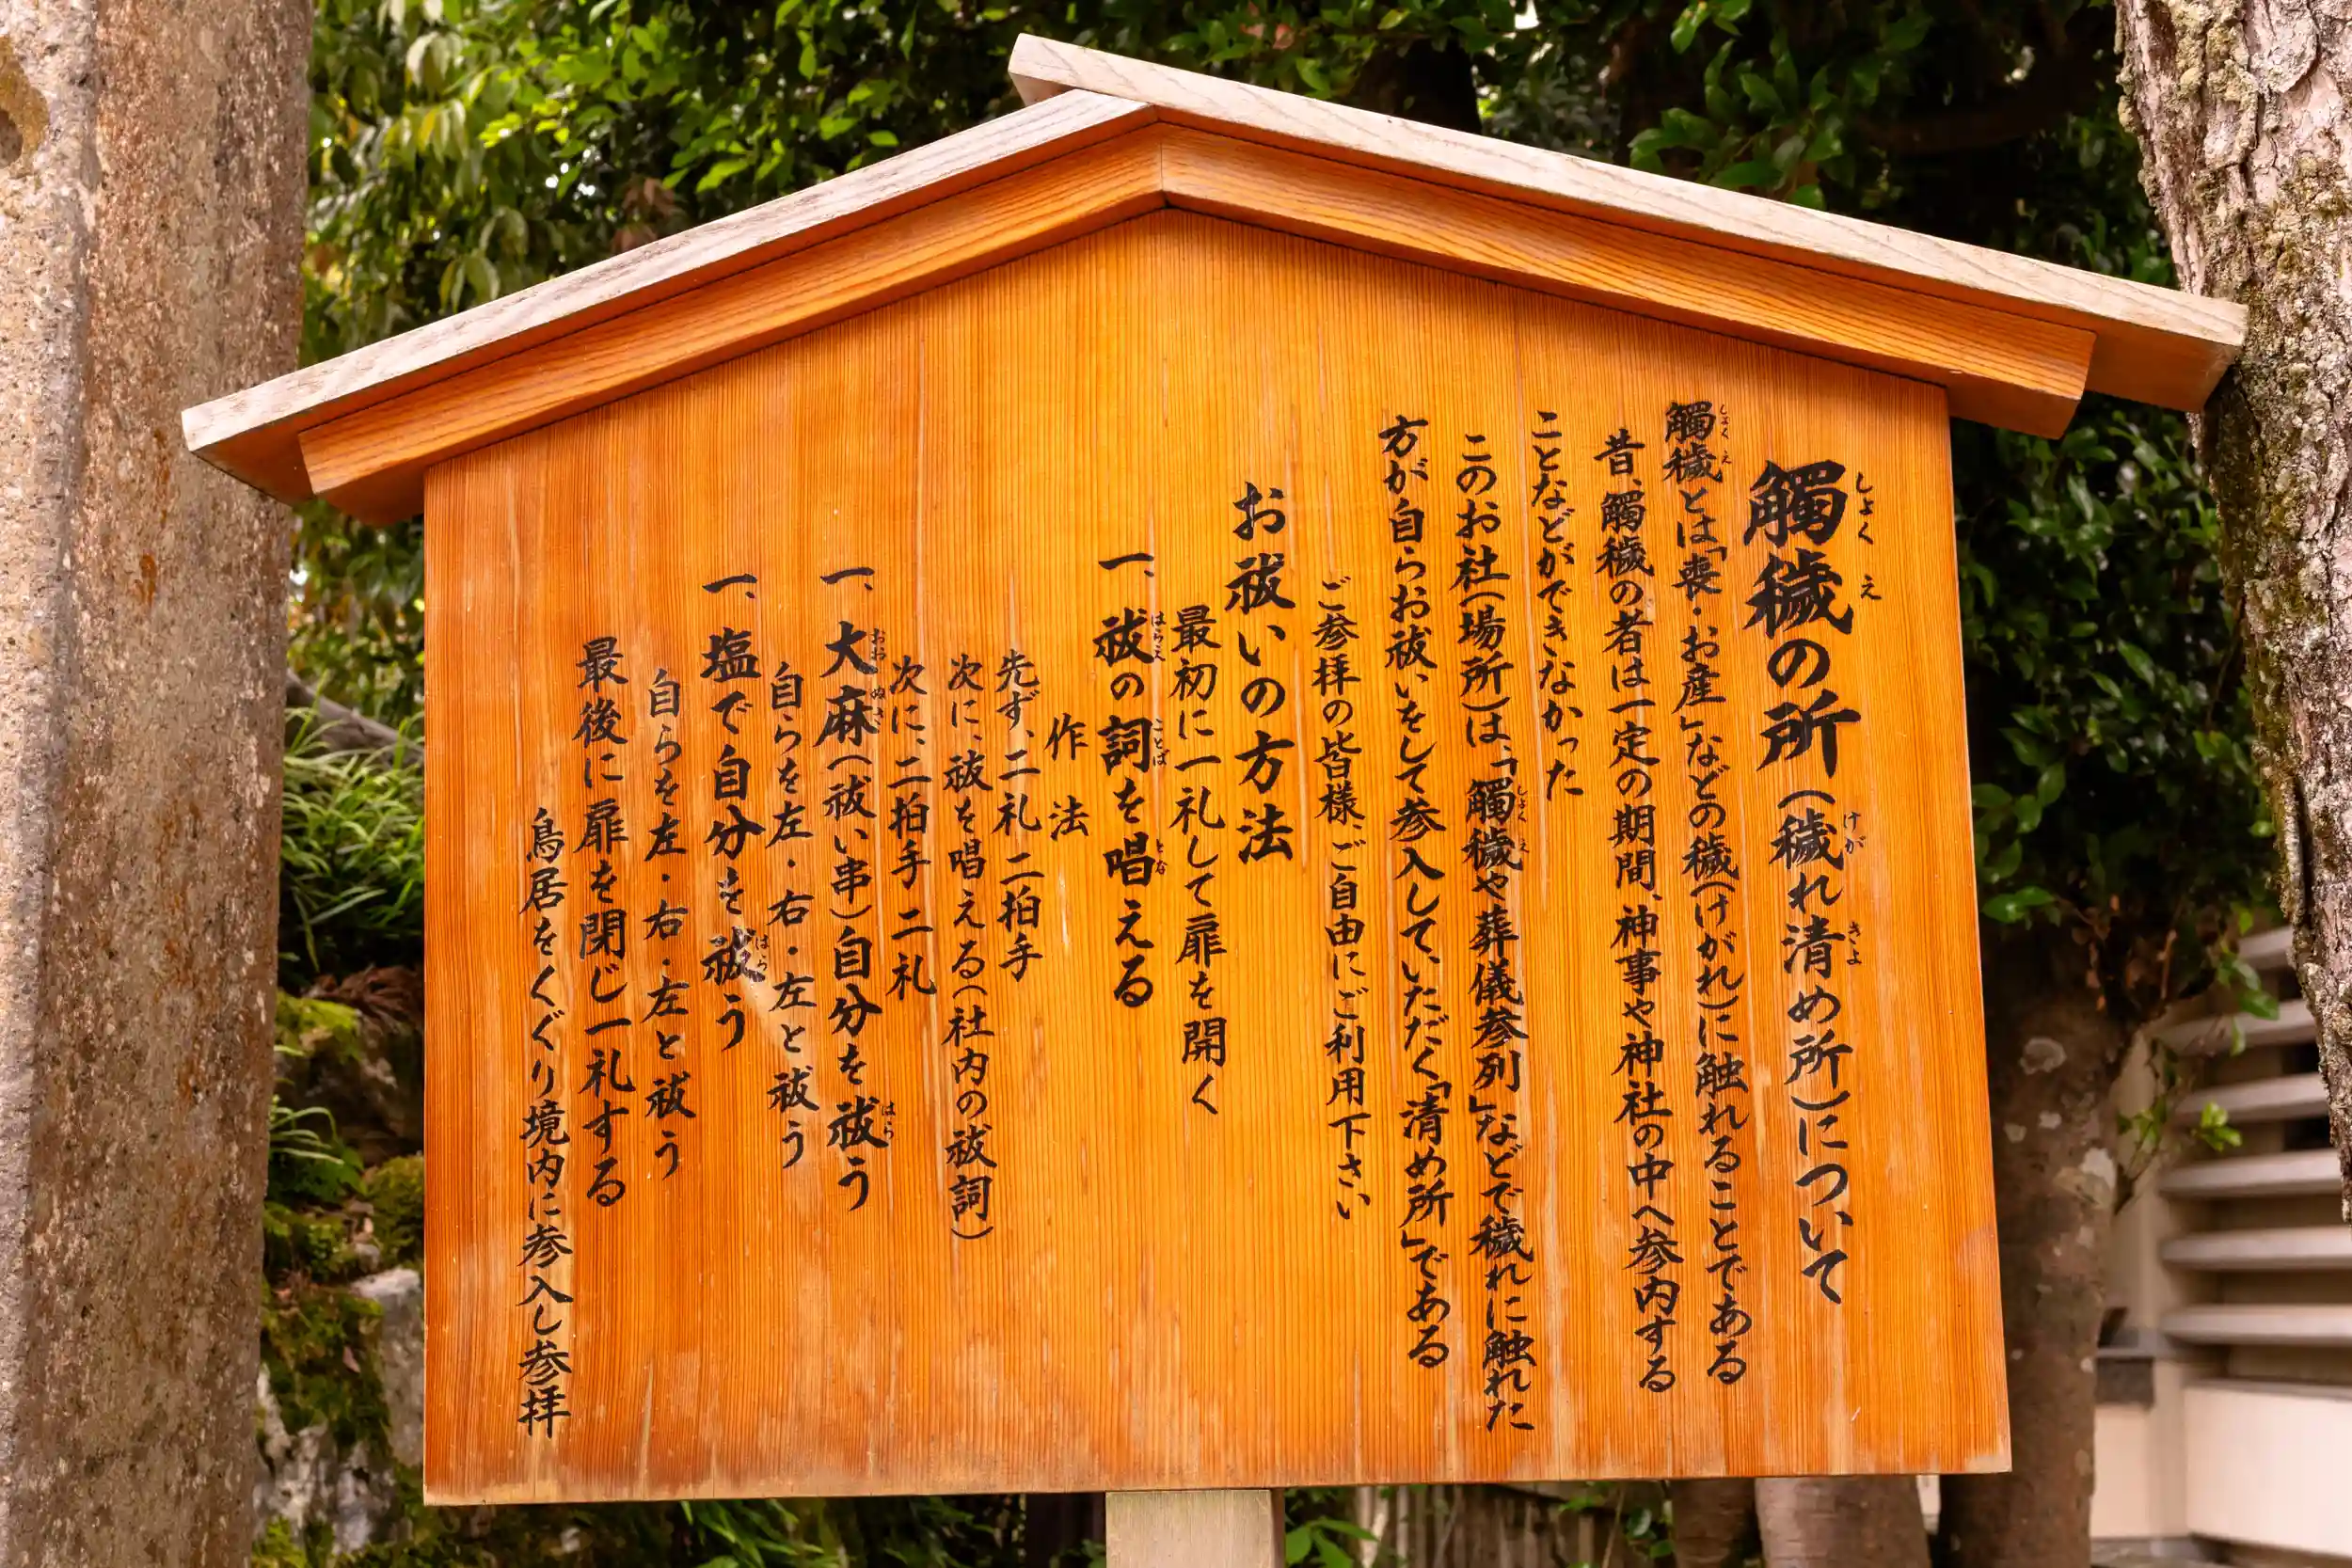 觸穢の所（穢れ清め所）について
觸穢とは「喪・お産」などの穢（けがれ）に触れることである
昔、觸穢の者は一定の期間、神事や神社の中へ参内する
ことなどができなかった
このお社（場所）は、「觸穢や葬儀参列」などで穢れに触れた
方が自らお祓いをして参入していただく「清め所」である
ご参拝の皆様、ご自由にご利用下さい
お祓いの方法
最初に一礼して扉を開く
一、祓の詞を唱える
作法
先ず、二礼 二拍手
次に、祓を唱える（社内の祓詞）
次に、二拍手 二礼
一、大麻（祓い串）自分を祓う
自らを左・右・左と祓う
一、塩で自分を祓う
自らを左・右・左と祓う
最後に扉を閉じ一礼する
鳥居をくぐり境内に参入し参拝